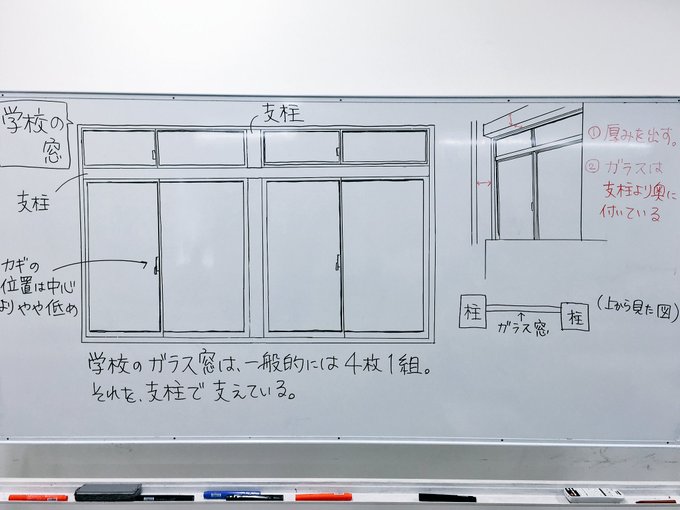 学校の
窓
支柱
支柱
カギの
位置は中心
よりやや低め
学校のガラス窓は、一般的には4枚1組。
それを、支柱で支えている。
①厚みを出す。
②ガラスは
支柱より奥に
付いている
柱
柱
ガラス窓
(上から見た図)